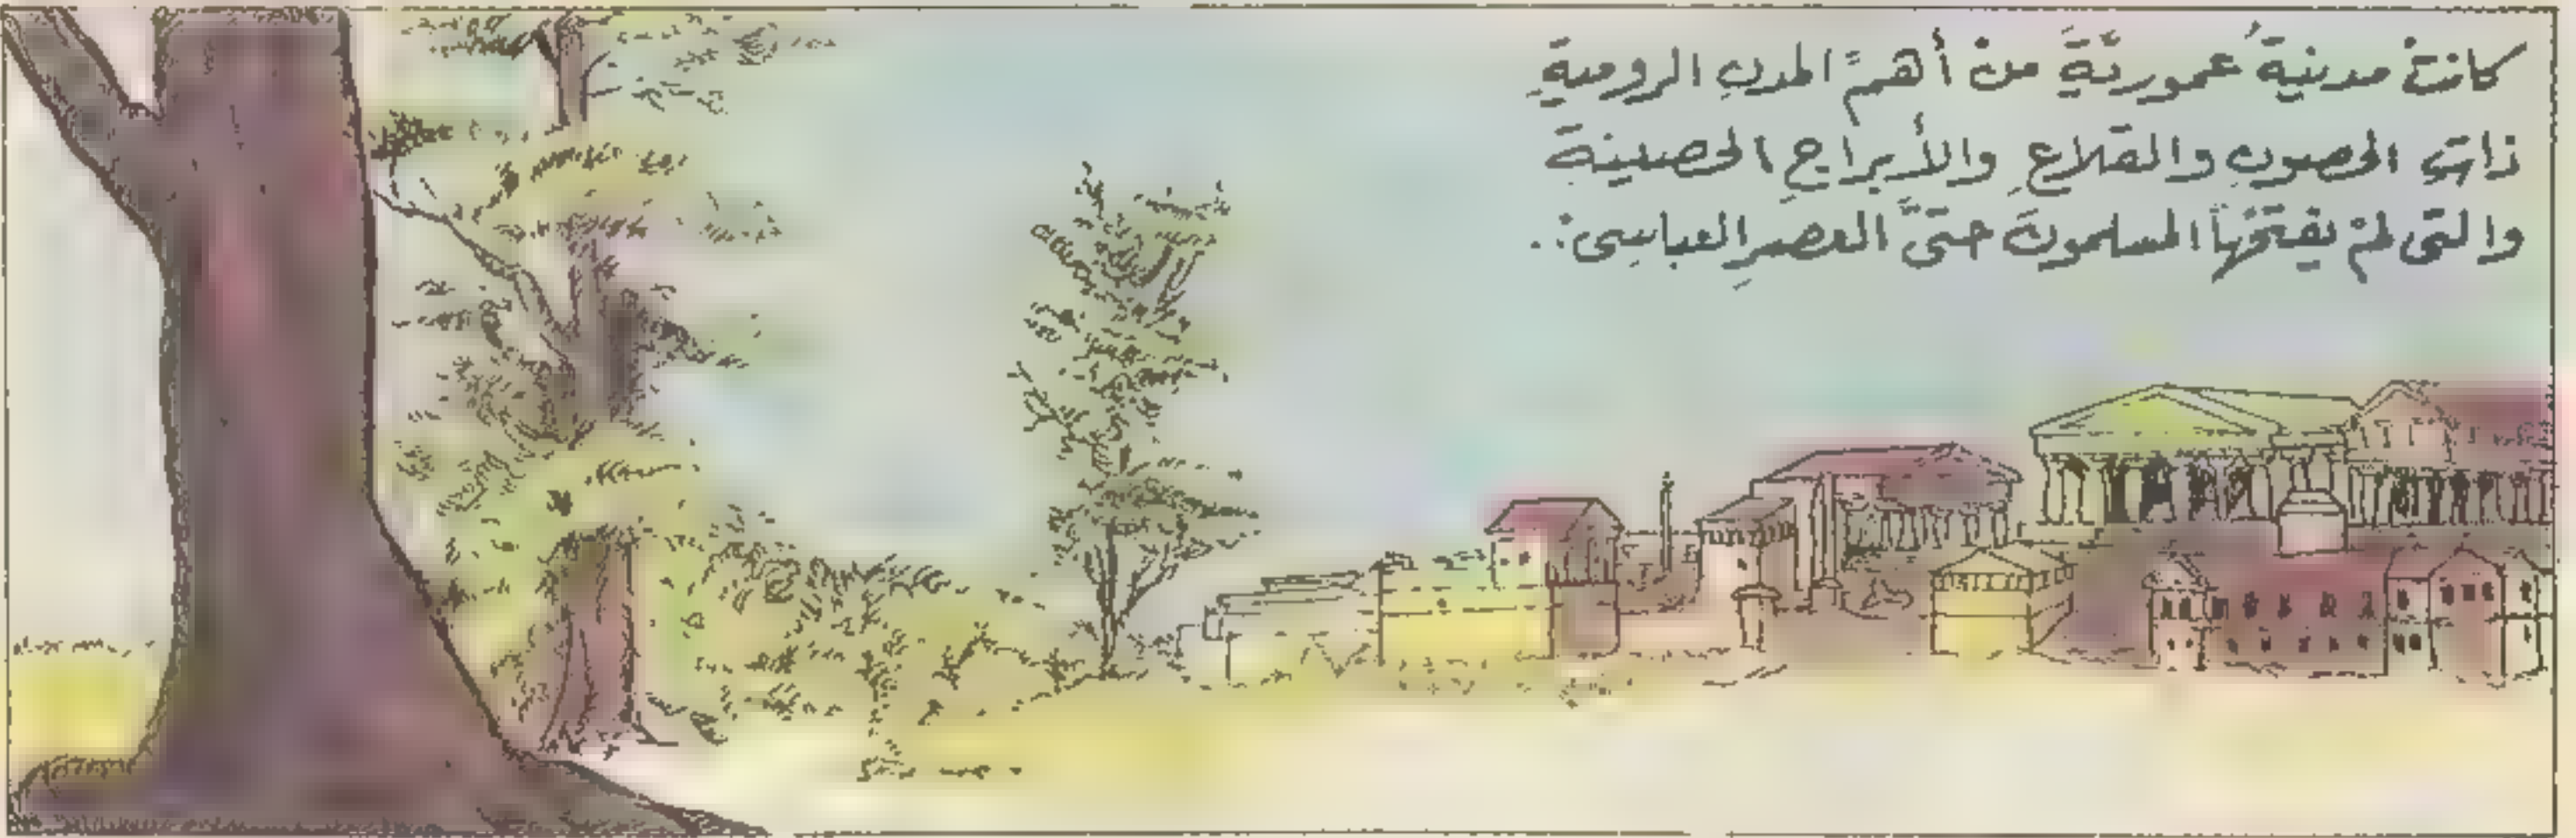 كانتْ مدينةُ عموريَّةَ منْ أهمِّ المدنِ الروميةِ
ذاتِ الحصونِ والقلاعِ والأبراجِ الحصينةِ
والتى لمْ يفتحْهَا المسلمونَ حتىَّ العصرِ العباسِى..